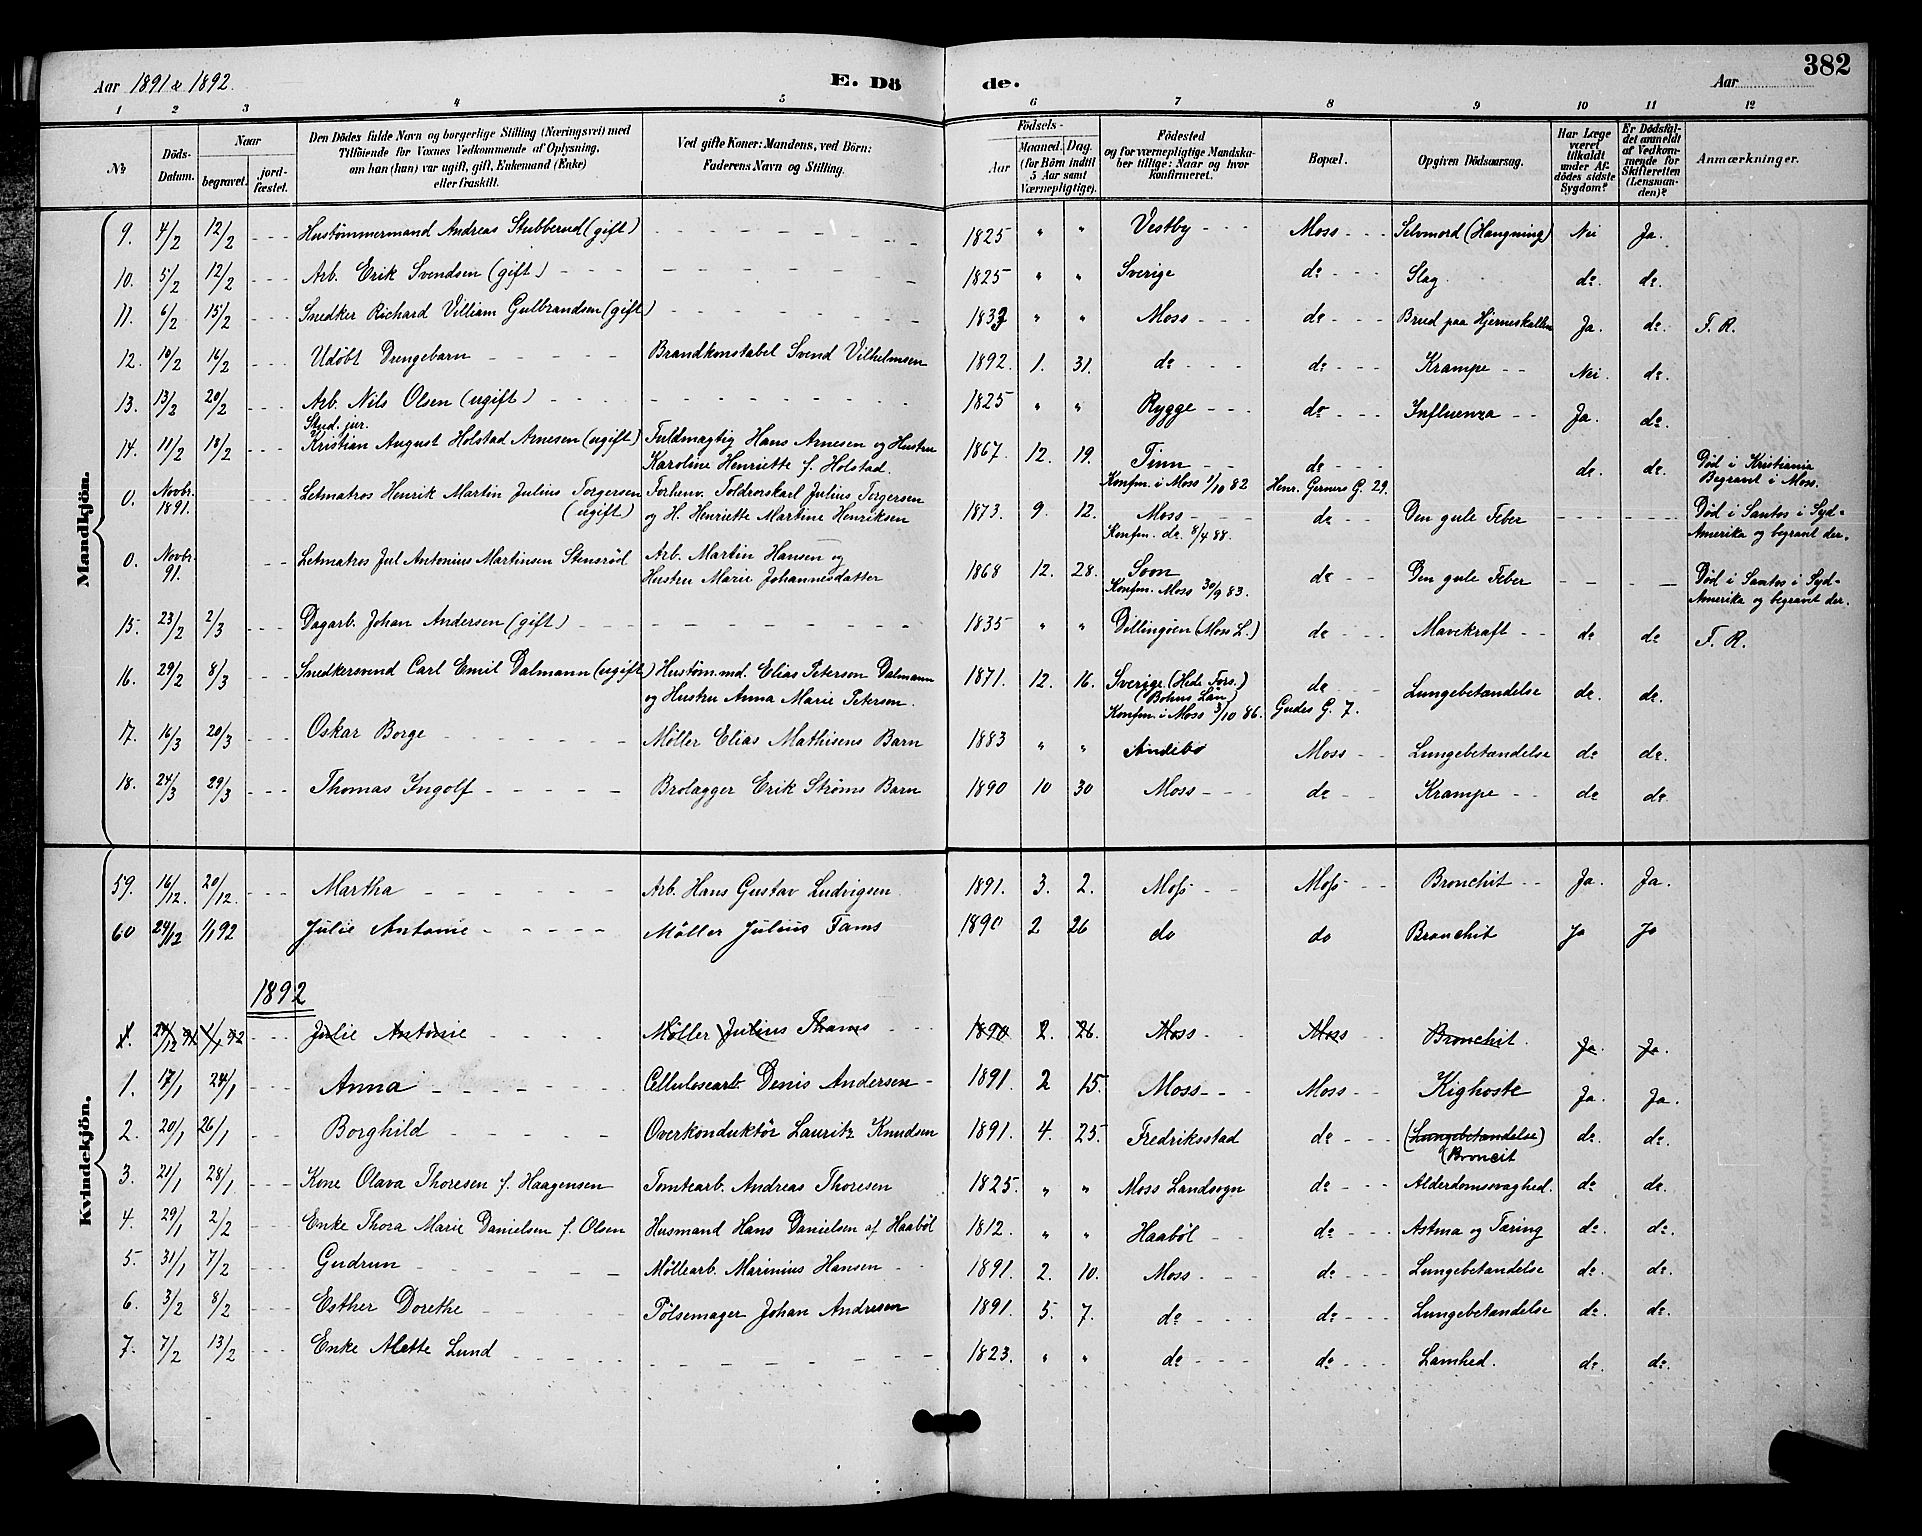 Aar 1891 & 1892.
E. Dö
de.
Aar
382
1 2 3 4 5 6 7 8 9 10 11 12
No.
Döds-Datum.
Naar
begravet.
jordfæstet.
Den Dödes fulde Navn og borgerlige Stilling (Næringsvei) med
Tilföiende for Voxnes Vedkommende af Oplysning,
om han (hun) var ugift, gift, Enkemand (Enke)
eller fraskilt.
Ved gifte Koner: Mandens, ved Börn:
Faderens Navn og Stilling.
Födsels-
Aar
Maaned. Dag.
(for Börn indtil
5 Aar samt
Værnepligtige).
Födested
og for værnepligtige Mandskaber tillige: Naar og hvor
konfirmeret.
Bopæl.
Opgiven Dödsaarsag.
Har Læge
været
tilkaldt
under Afdödes sidste
Sygdom?
Er Dödsfaldet anmeldt
af Vedkommende for
Skifteretten
(Lensmanden)?
Anmærkninger.
Mandkjön.
9. 4/2 12/2 Hustømmermand Andreas Stubberud (gift) 1825 " " Vestby Moss Selvmord (Hængning) Nei Ja.
10. 5/2 12/2 Arb. Erik Svendsen (gift) 1825 " " Sverige do Slag. do. do.
11. 6/2 15/2 Snedker Richard Villiam Gulbrandsen (gift) 1832 " " Moss do Brud paa Hjerneskallen Ja. do. F. R.
12. 10/2 16/2 Udøbt Drengebarn Brandkonstabel Svend Vilhelmsen 1892. 1. 31. do do Krampe Nei. do.
13. 13/2 20/2 Arb. Nils Olsen (ugift) 1825 " " Rygge do Influenza Ja. do.
Stud. jur.
14. 11/2 18/2 Kristian August Holstad Arnesen (ugift) Fuldmægtig Hans Arnesen og Hustru
Karoline Henriette f. Holstad. 1867. 12. 19. Tinn do do. do. Død i Kristiania
Konfm. i Moss 1/10 82 Henr. Gerners G. 29. Begravet i Moss.
0. Novbr. 1891. Letmatros Henrik Martin Julius Torgersen
(ugift) Forhenv. Toldrorskarl Julius Torgersen
og H. Henriette Martine Henriksen 1873. 9. 12. Moss do Den gule Feber Død i Santos i Syd-
Konfm. do. 8/4 88. Amerika og begravet der.
0. Novbr. 91. Letmatros Jul Antonius Martinsen Stensrød Arb. Martin Hansen og
Hustru Marie Johannesdatter 1868 12. 28. Soon do Den gule Feber Død i Santos i Syd-
Konfm. Moss 30/9 83. Amerika og begravet der.
15. 23/2 2/3 Dagarb. Johan Andersen (gift) 1835 " " Dillingøen (Moss L.) do Mavekræft do do F. R.
16. 29/2 8/3 Snedkersvend Carl Emil Dalmann (ugift) Hustøm.md. Elias Peterson Dalmann
og Hustru Anna Marie Peterson. 1871. 12. 16. Sverige (Hede Fors.)
(Bohus Län) do Lungebetændelse do. do.
Konfm. i Moss 3/10 86. Gudes G. 7.
17. 16/3 20/3 Oskar Borge Møller Elias Mathisens Barn 1883 " " Andebo Moss Lungebetændelse do do.
18. 24/3 29/3 Thomas Ingolf Brolægger Erik Strøms Barn 1890 10 30 Moss do Krampe do do.
Kvindekjön.
59. 16/12. 20/12. Martha Arb. Hans Gustav Ludvigsen 1891. 3. 2. Moss Moss Bronchit Ja. Ja.
60 24/12 1/1 92 Julie Antonie Møller Julius Tams 1890 2 26 do do Bronchit Ja Ja
1892
1. 24/12 91 1/1 92 Julie Antonie Møller Julius Thams 1890 2. 26. Moss Moss Bronchit. Ja. Ja.
1. 17/1 24/1 Anna Cellulosearb. Denis Andersen 1891. 2 15. Moss Moss Kighoste Ja. Ja.
2. 20/1 26/1 Borghild Overkonduktør Lauritz Knudsen 1891. 4. 25. Fredriksstad do (Lungebetændelse)
(Broncit do. do.
3. 21/1 28/1 Kone Olava Thoresen f. Haagensen Tomtearb. Andreas Thoresen 1825. " " Moss Landsogn do Alderdomssvaghed. do. do.
4. 29/1 2/2 Enke Thora Marie Danielsen f. Olsen Husmand Hans Danielsen af Haabøl 1812. " " Haabøl do. Astma og Tæring do. do.
5. 31/1 7/2 Gudrun Møllearb. Marinius Hansen 1891. 2. 10. Moss do. Lungebetændelse do. do.
6. 3/2 8/2 Esther Dorethe Pølsemager Johan Andresen 1891. 5. 7. do do. Lungebetændelse do. do.
7. 7/2 13/2 Enke Alette Lund 1823. " " do do. Lamhed. do. do.